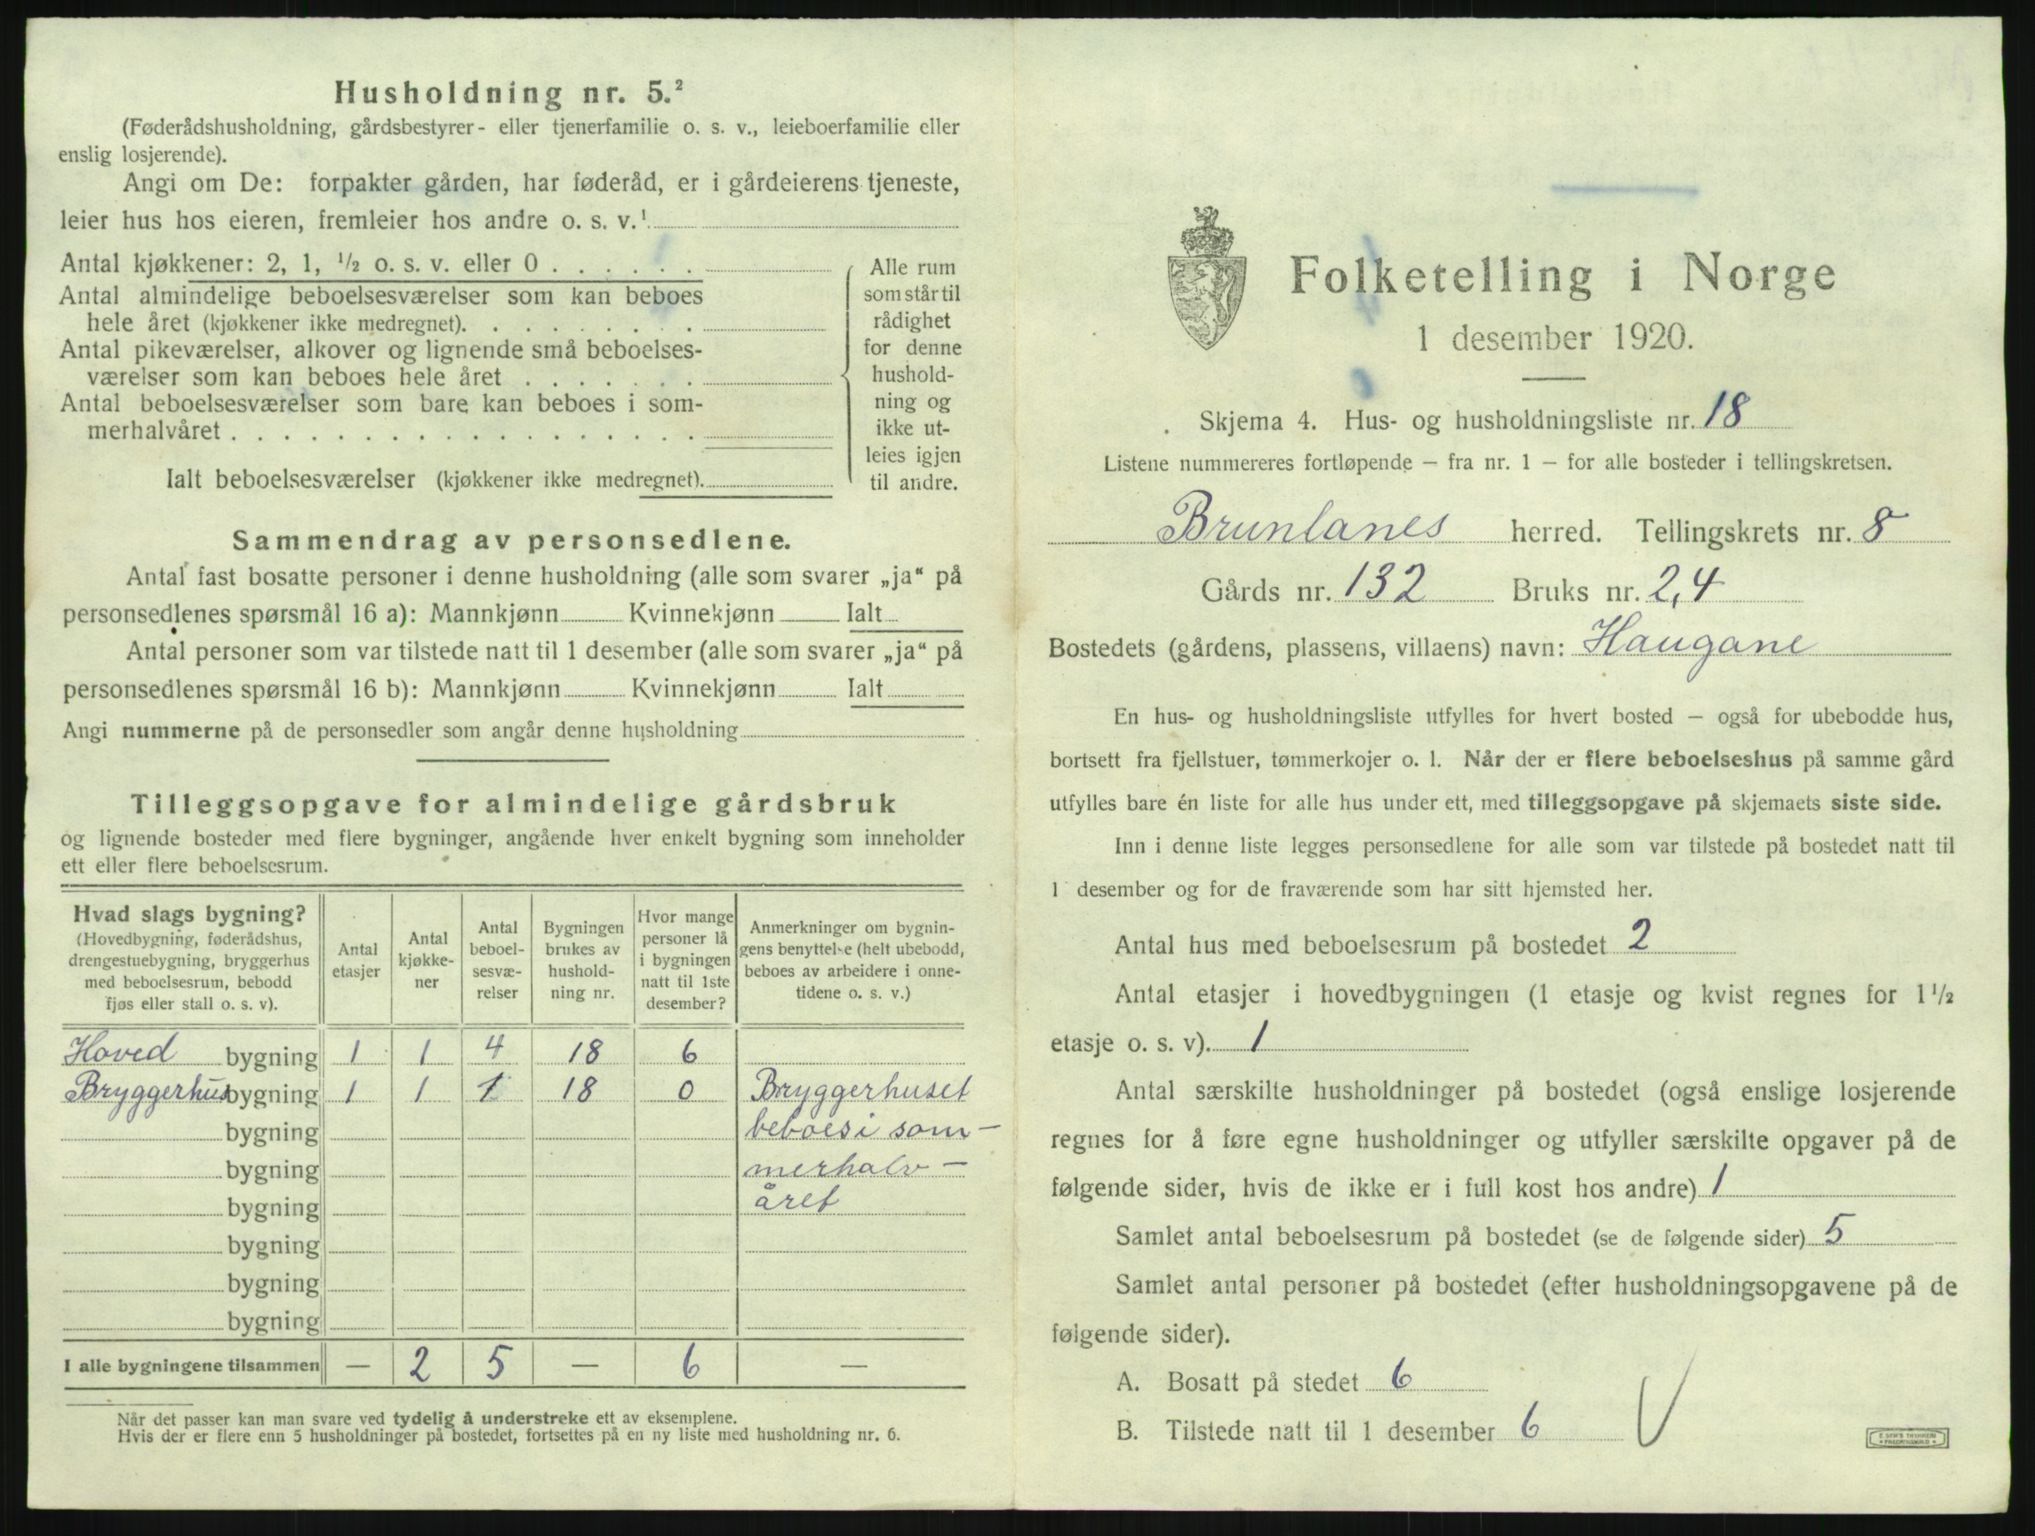 Husholdning nr. 5.²
(Føderådshusholdning, gårdsbestyrer- eller tjenerfamilie o. s. v., leieboerfamilie eller
enslig losjerende).
Angi om De: forpakter gården, har føderåd, er i gårdeierens tjeneste,
leier hus hos eieren, fremleier hos andre o. s. v.¹
Antal kjøkkener: 2, 1, ½ o. s. v. eller 0 . . . . . .
Antal almindelige beboelsesværelser som kan beboes
hele året (kjøkkener ikke medregnet). . . . . . . . .
Antal pikeværelser, alkover og lignende små beboelses-
værelser som kan beboes hele året . . . . . . .
Antal beboelsesværelser som bare kan beboes i som-
merhalvåret . . . . . . . . . . . . . . . . . .
Ialt beboelsesværelser (kjøkkener ikke medregnet).
Alle rum
som står til
rådighet
for denne
hushold-
ning og
ikke ut-
leies igjen
til andre.
Sammendrag av personsedlene.
Antal fast bosatte personer i denne husholdning (alle som svarer „ja“ på
personsedlenes spørsmål 16 a): Mannkjønn Kvinnekjønn Ialt
Antal personer som var tilstede natt til 1 desember (alle som svarer „ja“ på
personsedlenes spørsmål 16 b): Mannkjønn Kvinnekjønn Ialt
Angi nummerne på de personsedler som angår denne husholdning
Tilleggsopgave for almindelige gårdsbruk
og lignende bosteder med flere bygninger, angående hver enkelt bygning som inneholder
ett eller flere beboelsesrum.
Hvad slags bygning?
(Hovedbygning, føderådshus,
drengestuebygning, bryggerhus
med beboelsesrum, bebodd
fjøs eller stall o. s. v).
Antal
etasjer
Antal
kjøkke-
ner
Antal
beboel-
sesvæ-
relser
Bygningen
brukes av
hushold-
ning nr.
Hvor mange
personer lå
i bygningen
natt til 1ste
desember?
Anmerkninger om bygnin-
gens benyttelse (helt ubebodd,
beboes av arbeidere i onne-
tidene o. s. v.)
Hoved bygning 1 1 4 18 6
Bryggerhus bygning 1 1 1 18 0 Bryggerhuset
bygning beboes i som-
bygning merhalv-
bygning året
bygning
bygning
bygning
I alle bygningene tilsammen — 2 5 — 6 —
Når det passer kan man svare ved tydelig å understreke ett av eksemplene.
Hvis der er flere enn 5 husholdninger på bostedet, fortsettes på en ny liste med husholdning nr. 6.
Folketelling i Norge
1 desember 1920.
Skjema 4. Hus- og husholdningsliste nr. 18
Listene nummereres fortløpende — fra nr. 1 — for alle bosteder i tellingskretsen.
Brunlanes herred. Tellingskrets nr. 8
Gårds nr. 132 Bruks nr. 2,4
Bostedets (gårdens, plassens, villaens) navn: Haugane
En hus- og husholdningsliste utfylles for hvert bosted — også for ubebodde hus,
bortsett fra fjellstuer, tømmerkojer o. l. Når der er flere beboelseshus på samme gård
utfylles bare én liste for alle hus under ett, med tilleggsopgave på skjemaets siste side.
Inn i denne liste legges personsedlene for alle som var tilstede på bostedet natt til
1 desember og for de fraværende som har sitt hjemsted her.
Antal hus med beboelsesrum på bostedet 2
Antal etasjer i hovedbygningen (1 etasje og kvist regnes for 1½
etasje o. s. v). 1
Antal særskilte husholdninger på bostedet (også enslige losjerende
regnes for å føre egne husholdninger og utfyller særskilte opgaver på de
følgende sider, hvis de ikke er i full kost hos andre) 1
Samlet antal beboelsesrum på bostedet (se de følgende sider) 5
Samlet antal personer på bostedet (efter husholdningsopgavene på de
følgende sider).
A. Bosatt på stedet 6
B. Tilstede natt til 1 desember 6